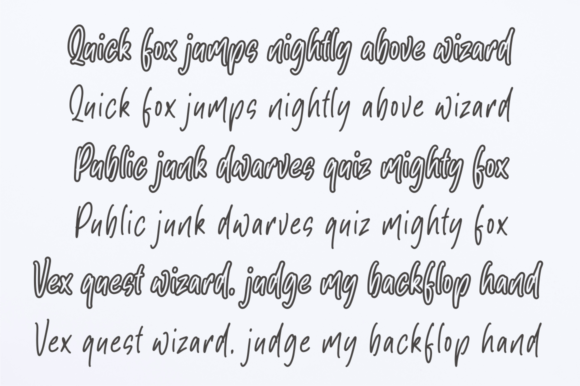 Quick fox jumps nightly above wizard
Quick fox jumps nightly above wizard
Public junk dwarves quiz mighty fox
Public junk dwarves quiz mighty fox
Vex quest wizard. judge my backflop hand
Vex quest wizard. judge my backflop hand